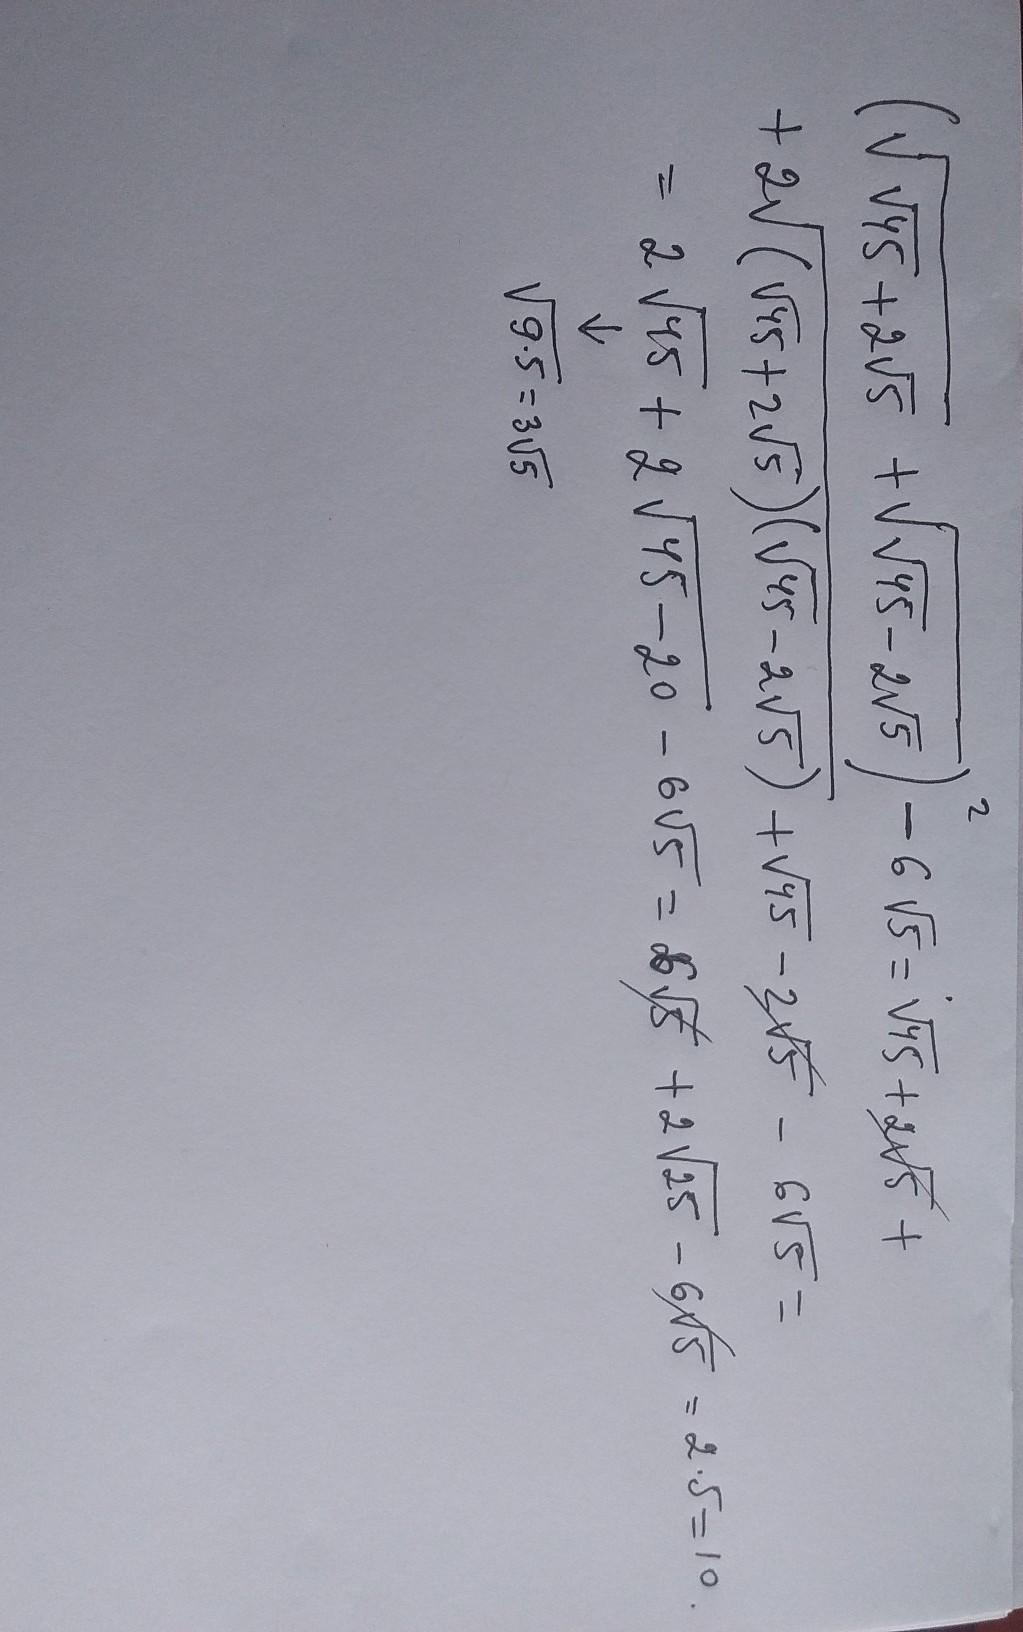 (√(√45+2√5) + √(√45-2√5))² - 6√5 = √45 + 2√5 +
+ 2√((√45+2√5)(√45-2√5)) + √45 - 2√5 - 6√5 =
= 2√45 + 2√(45-20) - 6√5 = 6√5 + 2√25 - 6√5 = 2·5 = 10.
↓
√(9·5) = 3√5